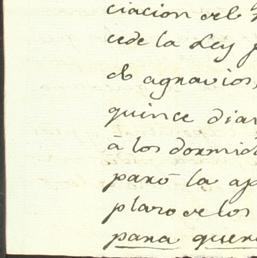 ciacion del
cede la Ley
de agravios,
quince dias
à los dormid
paró la ap
plazo de los
para quere